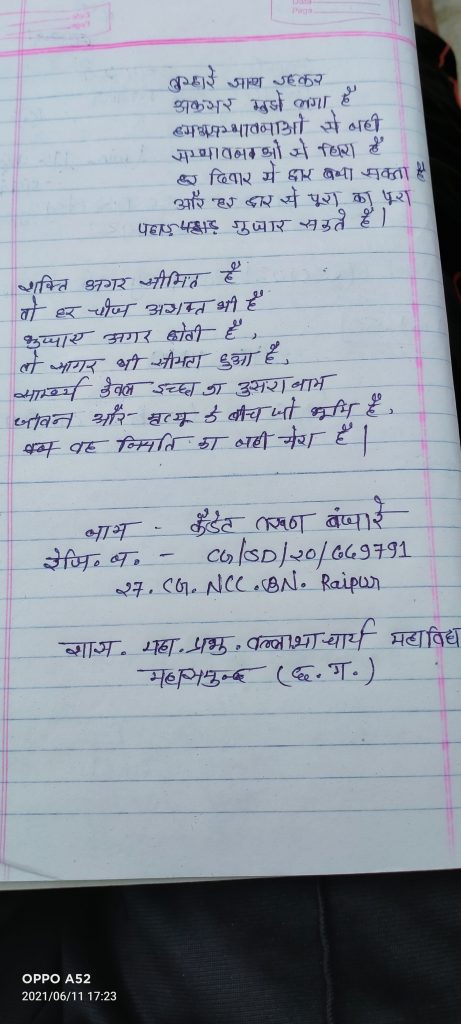 Data
Page
तुम्हारे साथ रहकर
अकसर मुझे लगा है
हम असम्भावनाओ से नही
सम्भावनाओ से घिरा है
हर दिवार मे द्वार बना सकता है
और हर द्वार से पूरा का पूरा
पहाड़ गुज्जार सकते है।
शक्ति अगर सीमित है
तो हर चीज अशक्त भी है
भुजाए अगर छोटी है,
तो सागर भी सीमटा हुआ है,
सामर्थ्य केवल इच्छा का दुसरा नाम
जीवन और मृत्यू के बीच जो भूमि है,
वह नियति का नही मेरा है|
नाम - कैडेट तरुण बंजारे
रेजि. न. - CG/SD/20/669791
27. CG. NCC. BN. Raipur
शास. महा. प्रभु. वल्लाभाचार्य महाविद्य
महासमुन्द (छ. ग.)
OPPO A52
2021/06/11 17:23